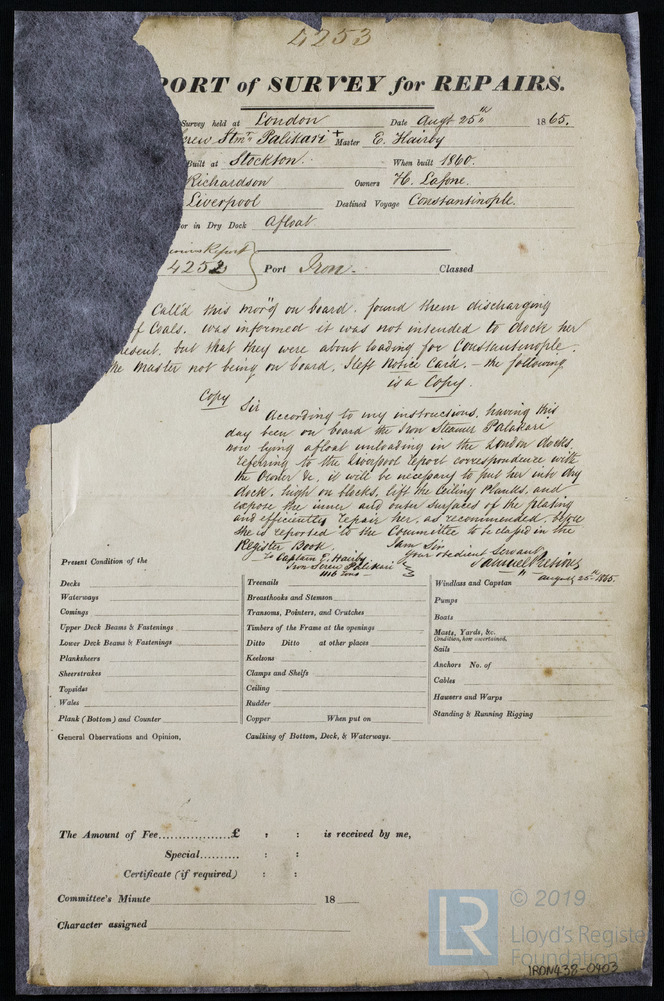 4253
PORT of SURVEY for REPAIRS.
Survey held at London Date Augt 25th 1865.
crew Stmr Palikari + Master E. Hairby
Built at Stockton. When built 1860.
Richardson Owners H. Lafone.
Liverpool Destined Voyage Constantinople.
or in Dry Dock Afloat
Report
4252 Port Iron. Classed
Call'd this mor'g on board. found them discharging
of Coals. was informed it was not intended to dock her
present, but that they were about loading for Constantinople.
the Master not being on board, I left Notice Card. – the following
is a Copy.
Copy Sir
According to my instructions, having this
day been on board the Iron Steamer Palakari
now lying afloat unloading in the London docks,
referring to the Liverpool report correspondence with
the Owner &c, it will be necessary to put her into dry
dock, high on blocks, lift the Ceiling Planks, and
expose the inner and outer surfaces of the plating
and efficiently repair her, as recommended, before
she is reported to the Committee to be classed in the
Register Book.
I am Sir,
Your obedient Servant
To Captain E. Hairby. Samuel
Iron Screw Palikari
tons August 25th 1865.
Present Condition of the
Decks Treenails Windlass and Capstan
Waterways Breasthooks and Stemson Pumps
Comings Transoms, Pointers, and Crutches Boats
Upper Deck Beams & Fastenings Timbers of the Frame at the openings Masts, Yards, &c.
Condition, how ascertained,
Lower Deck Beams & Fastenings Ditto Ditto at other places Sails
Planksheers Keelsons Anchors No. of
Sheerstrakes Clamps and Shelfs Cables
Topsides Ceiling Hawsers and Warps
Wales Rudder Standing & Running Rigging
Plank (Bottom) and Counter Copper When put on
General Observations and Opinion, Caulking of Bottom, Deck, & Waterways.
The Amount of Fee..................£ , : is received by me,
Special.......... : :
Certificate (if required) : :
Committee's Minute 18
Character assigned
LR © 2019
Lloyd's Register
Foundation
IRON438-0403